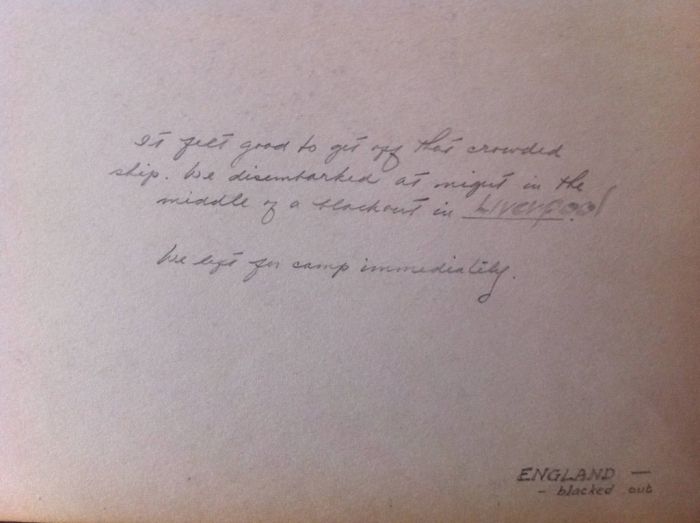 It felt good to get off that crowded
ship. We disembarked at night in the
middle of a blackout in Liverpool.
We left for camp immediately.
ENGLAND —
- blacked out